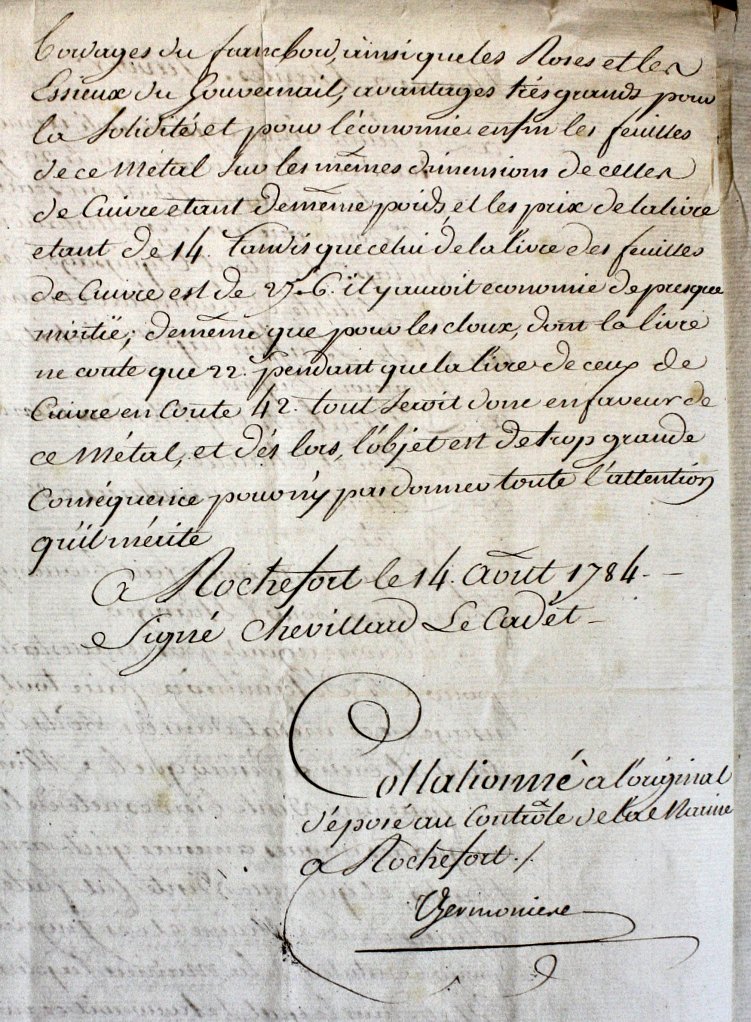 Bordages du francbord, ainsi que les Roses et les
Essieux du Gouvernail, avantages très grands pour
la solidité et pour l'économie enfin les feuilles
de ce Métal sur les mêmes dimensions de celles
de Cuivre etant de même poids, et les prix de la livre
etant de 14. tandis que celui de la livre des feuilles
de Cuivre est de 6. il y auroit economie de presque
moitié; de même que pour les cloux, dont la livre
ne coute que 22. pendant que la livre de ceux de
Cuivre en Coute 42. tout seroit donc en faveur de
ce Métal, et dés lors, l'objet est de trop grande
Conséquence pour n'y pas donner toute l'attention
qu'il mérite
A Rochefort le 14. Août 1784.
Signé Chevillard Le Cadét
Collationné a l'original
déposé au Contrôle de la Marine
a Rochefort ./.